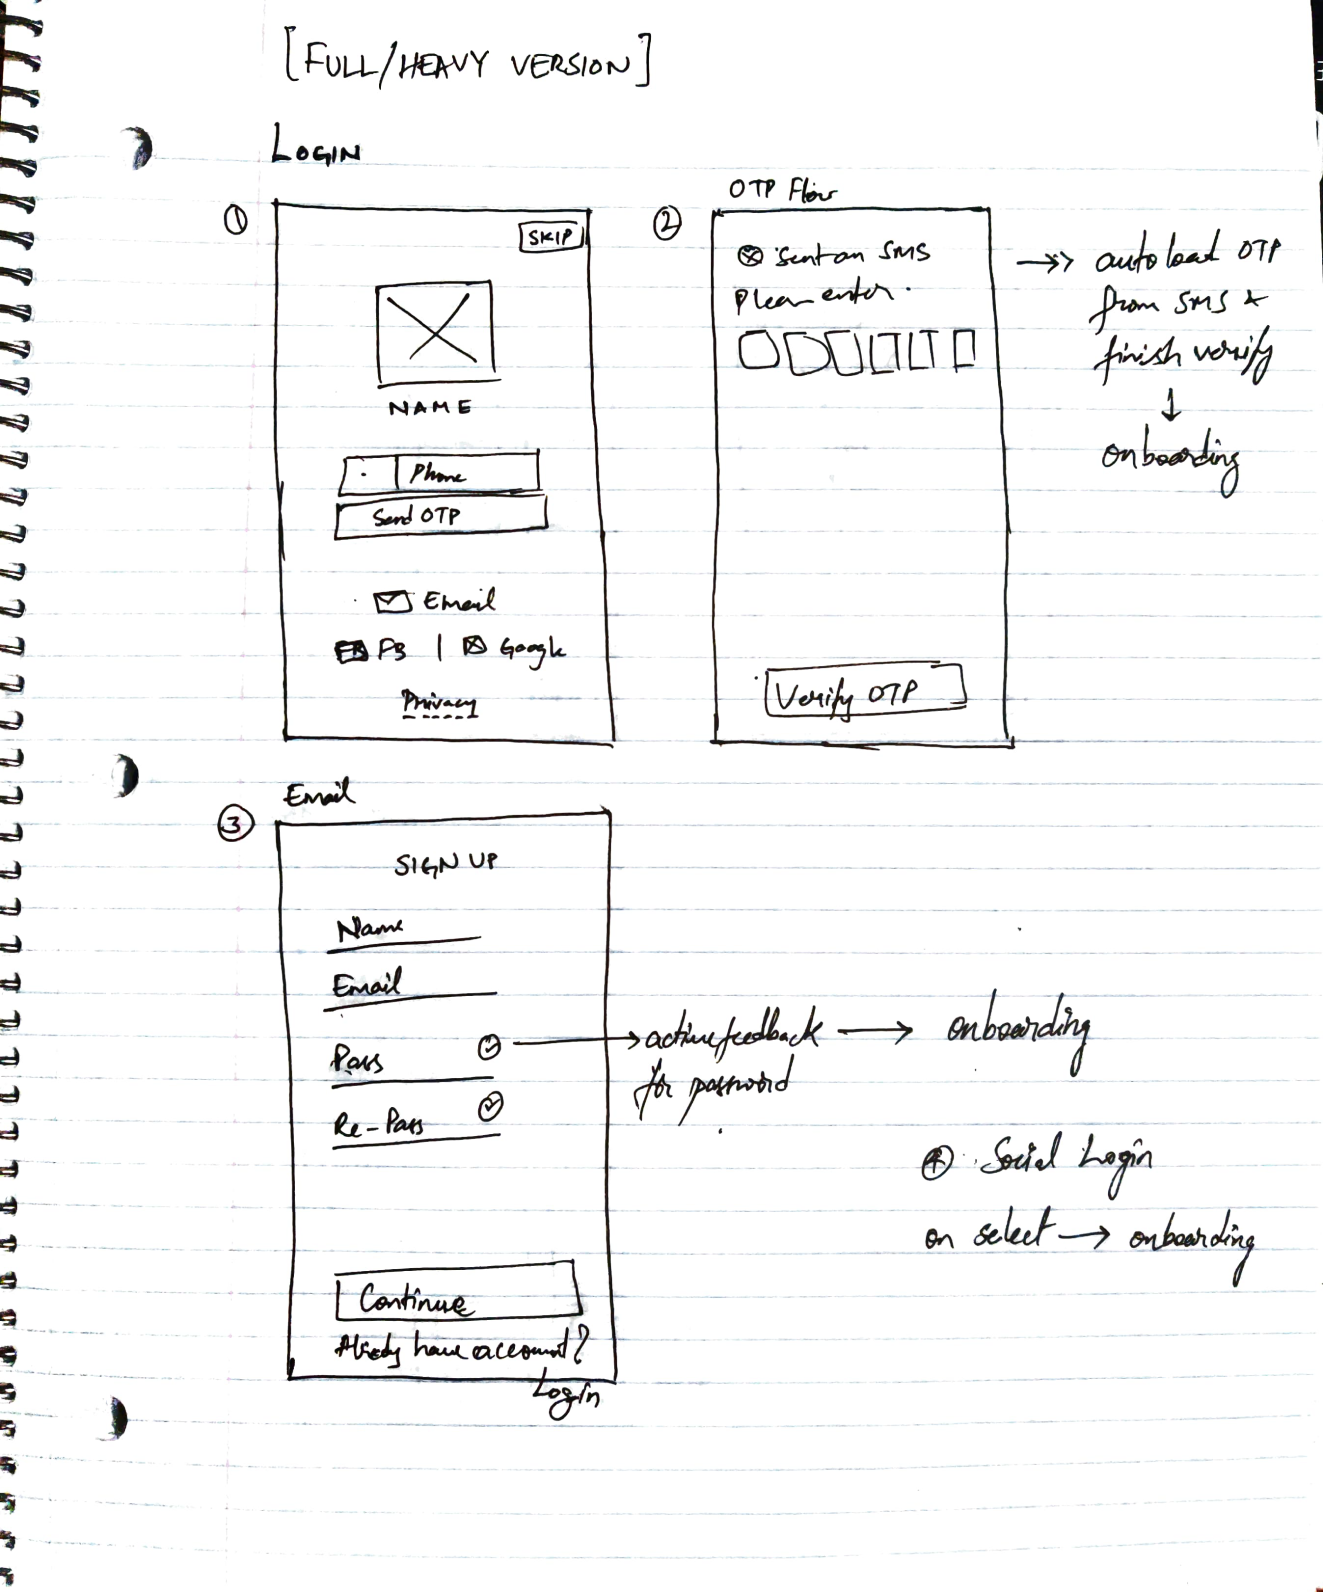 [FULL/HEAVY VERSION]
LOGIN
①
SKIP
NAME
Phone
Send OTP
Email
FB | Google
Privacy
OTP Flow
②
Sent an SMS
Please enter.
Verify OTP
→> auto load OTP
from SMS &
finish verify
↓
onboarding
Email
③
SIGN UP
Name
Email
Pass
Re-Pass
Continue
Already have account?
Login
→ active feedback → onboarding
for password
④ Social Login
on select → onboarding